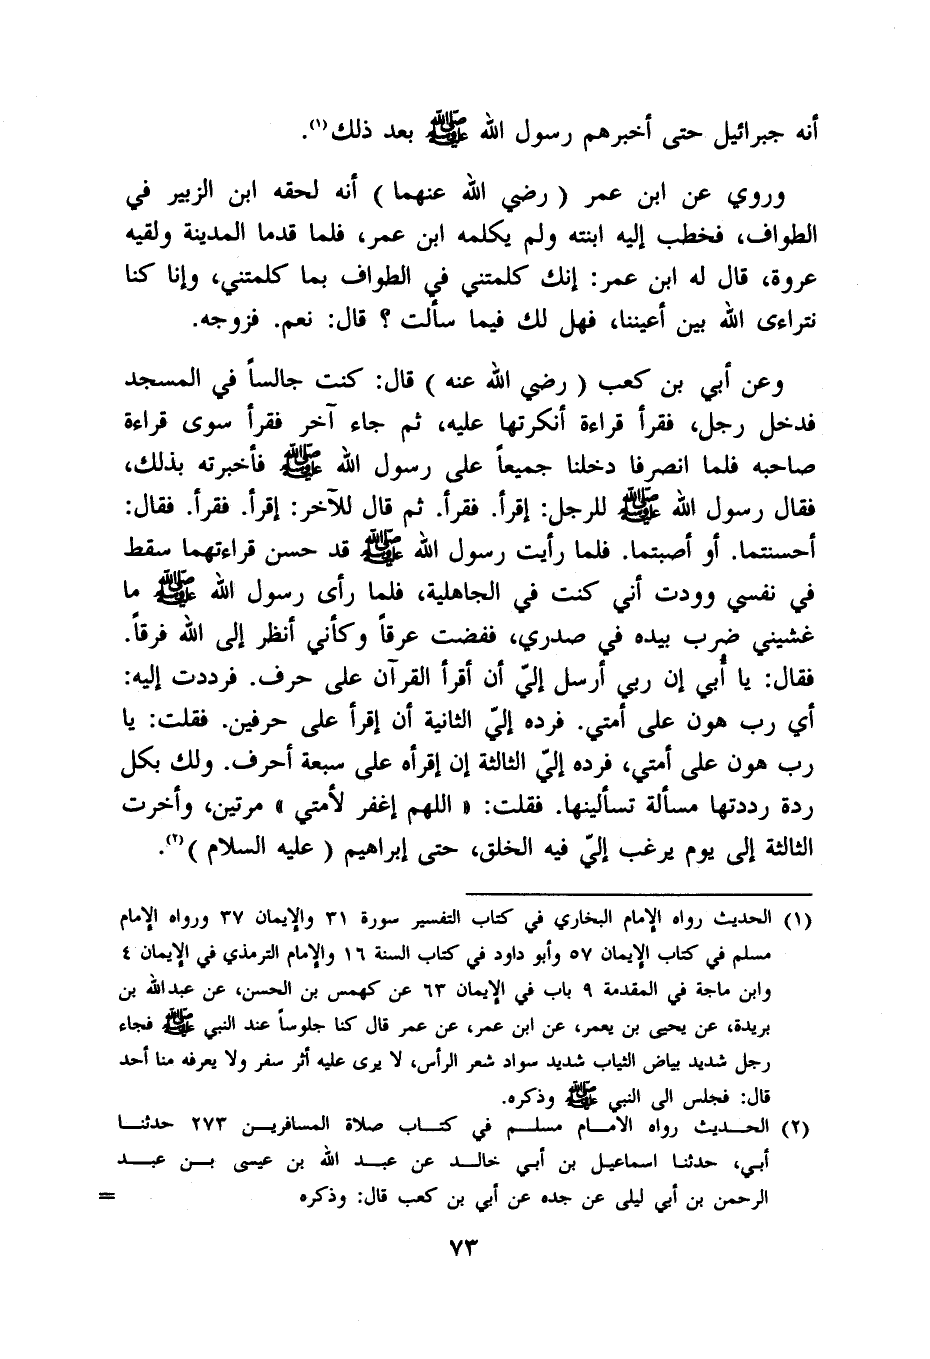 أنه جبرائيل حتى أخبرهم رسول الله ﷺ بعد ذلك(١).
وروي عن ابن عمر ( رضي الله عنهما ) أنه لحقه ابن الزبير في
الطواف، فخطب إليه ابنته ولم يكلمه ابن عمر، فلما قدما المدينة ولقيه
عروة، قال له ابن عمر: إنك كلمتني في الطواف بما كلمتني، وإنا كنا
نتراءى الله بين أعيننا، فهل لك فيما سألت ؟ قال: نعم. فزوجه.
وعن أبي بن كعب ( رضي الله عنه ) قال: كنت جالساً في المسجد
فدخل رجل، فقرأ قراءة أنكرتها عليه، ثم جاء آخر فقرأ سوى قراءة
صاحبه فلما انصرفا دخلنا جميعاً على رسول الله ﷺ فأخبرته بذلك،
فقال رسول الله ﷺ للرجل: إقرأ. فقرأ. ثم قال للآخر: إقرأ. فقرأ. فقال:
أحسنتما. أو أصبتما. فلما رأيت رسول الله ﷺ قد حسن قراءتهما سقط
في نفسي وودت أني كنت في الجاهلية، فلما رأى رسول الله ﷺ ما
غشيني ضرب بيده في صدري، ففضت عرقاً وكأني أنظر إلى الله فرقاً.
فقال: يا أُبي إن ربي أرسل إليّ أن أقرأ القرآن على حرف. فرددت إليه:
أي رب هون على أمتي. فرده إليّ الثانية أن إقرأ على حرفين. فقلت: يا
رب هون على أمتي، فرده إليّ الثالثة إن إقرأه على سبعة أحرف. ولك بكل
ردة رددتها مسألة تسألينها. فقلت: « اللهم إغفر لأمتي » مرتين، وأخرت
الثالثة إلى يوم يرغب إليّ فيه الخلق، حتى إبراهيم ( عليه السلام )(٢).
(١) الحديث رواه الإمام البخاري في كتاب التفسير سورة ٣١ والإيمان ٣٧ ورواه الإمام
مسلم في كتاب الإيمان ٥٧ وأبو داود في كتاب السنة ١٦ والإمام الترمذي في الإيمان ٤
وابن ماجة في المقدمة ٩ باب في الإيمان ٦٣ عن كهمس بن الحسن، عن عبدالله بن
بريدة، عن يحيى بن يعمر، عن ابن عمر، عن عمر قال كنا جلوساً عند النبي ﷺ فجاء
رجل شديد بياض الثياب شديد سواد شعر الرأس، لا يرى عليه أثر سفر ولا يعرفه منا أحد
قال: فجلس الى النبي ﷺ وذكره.
(٢) الحديث رواه الامام مسلم في كتاب صلاة المسافرين ٢٧٣ حدثنا
أبي، حدثنا اسماعيل بن أبي خالد عن عبد الله بن عيسى بن عبد
الرحمن بن أبي ليلى عن جده عن أبي بن كعب قال: وذكره =
٧٣